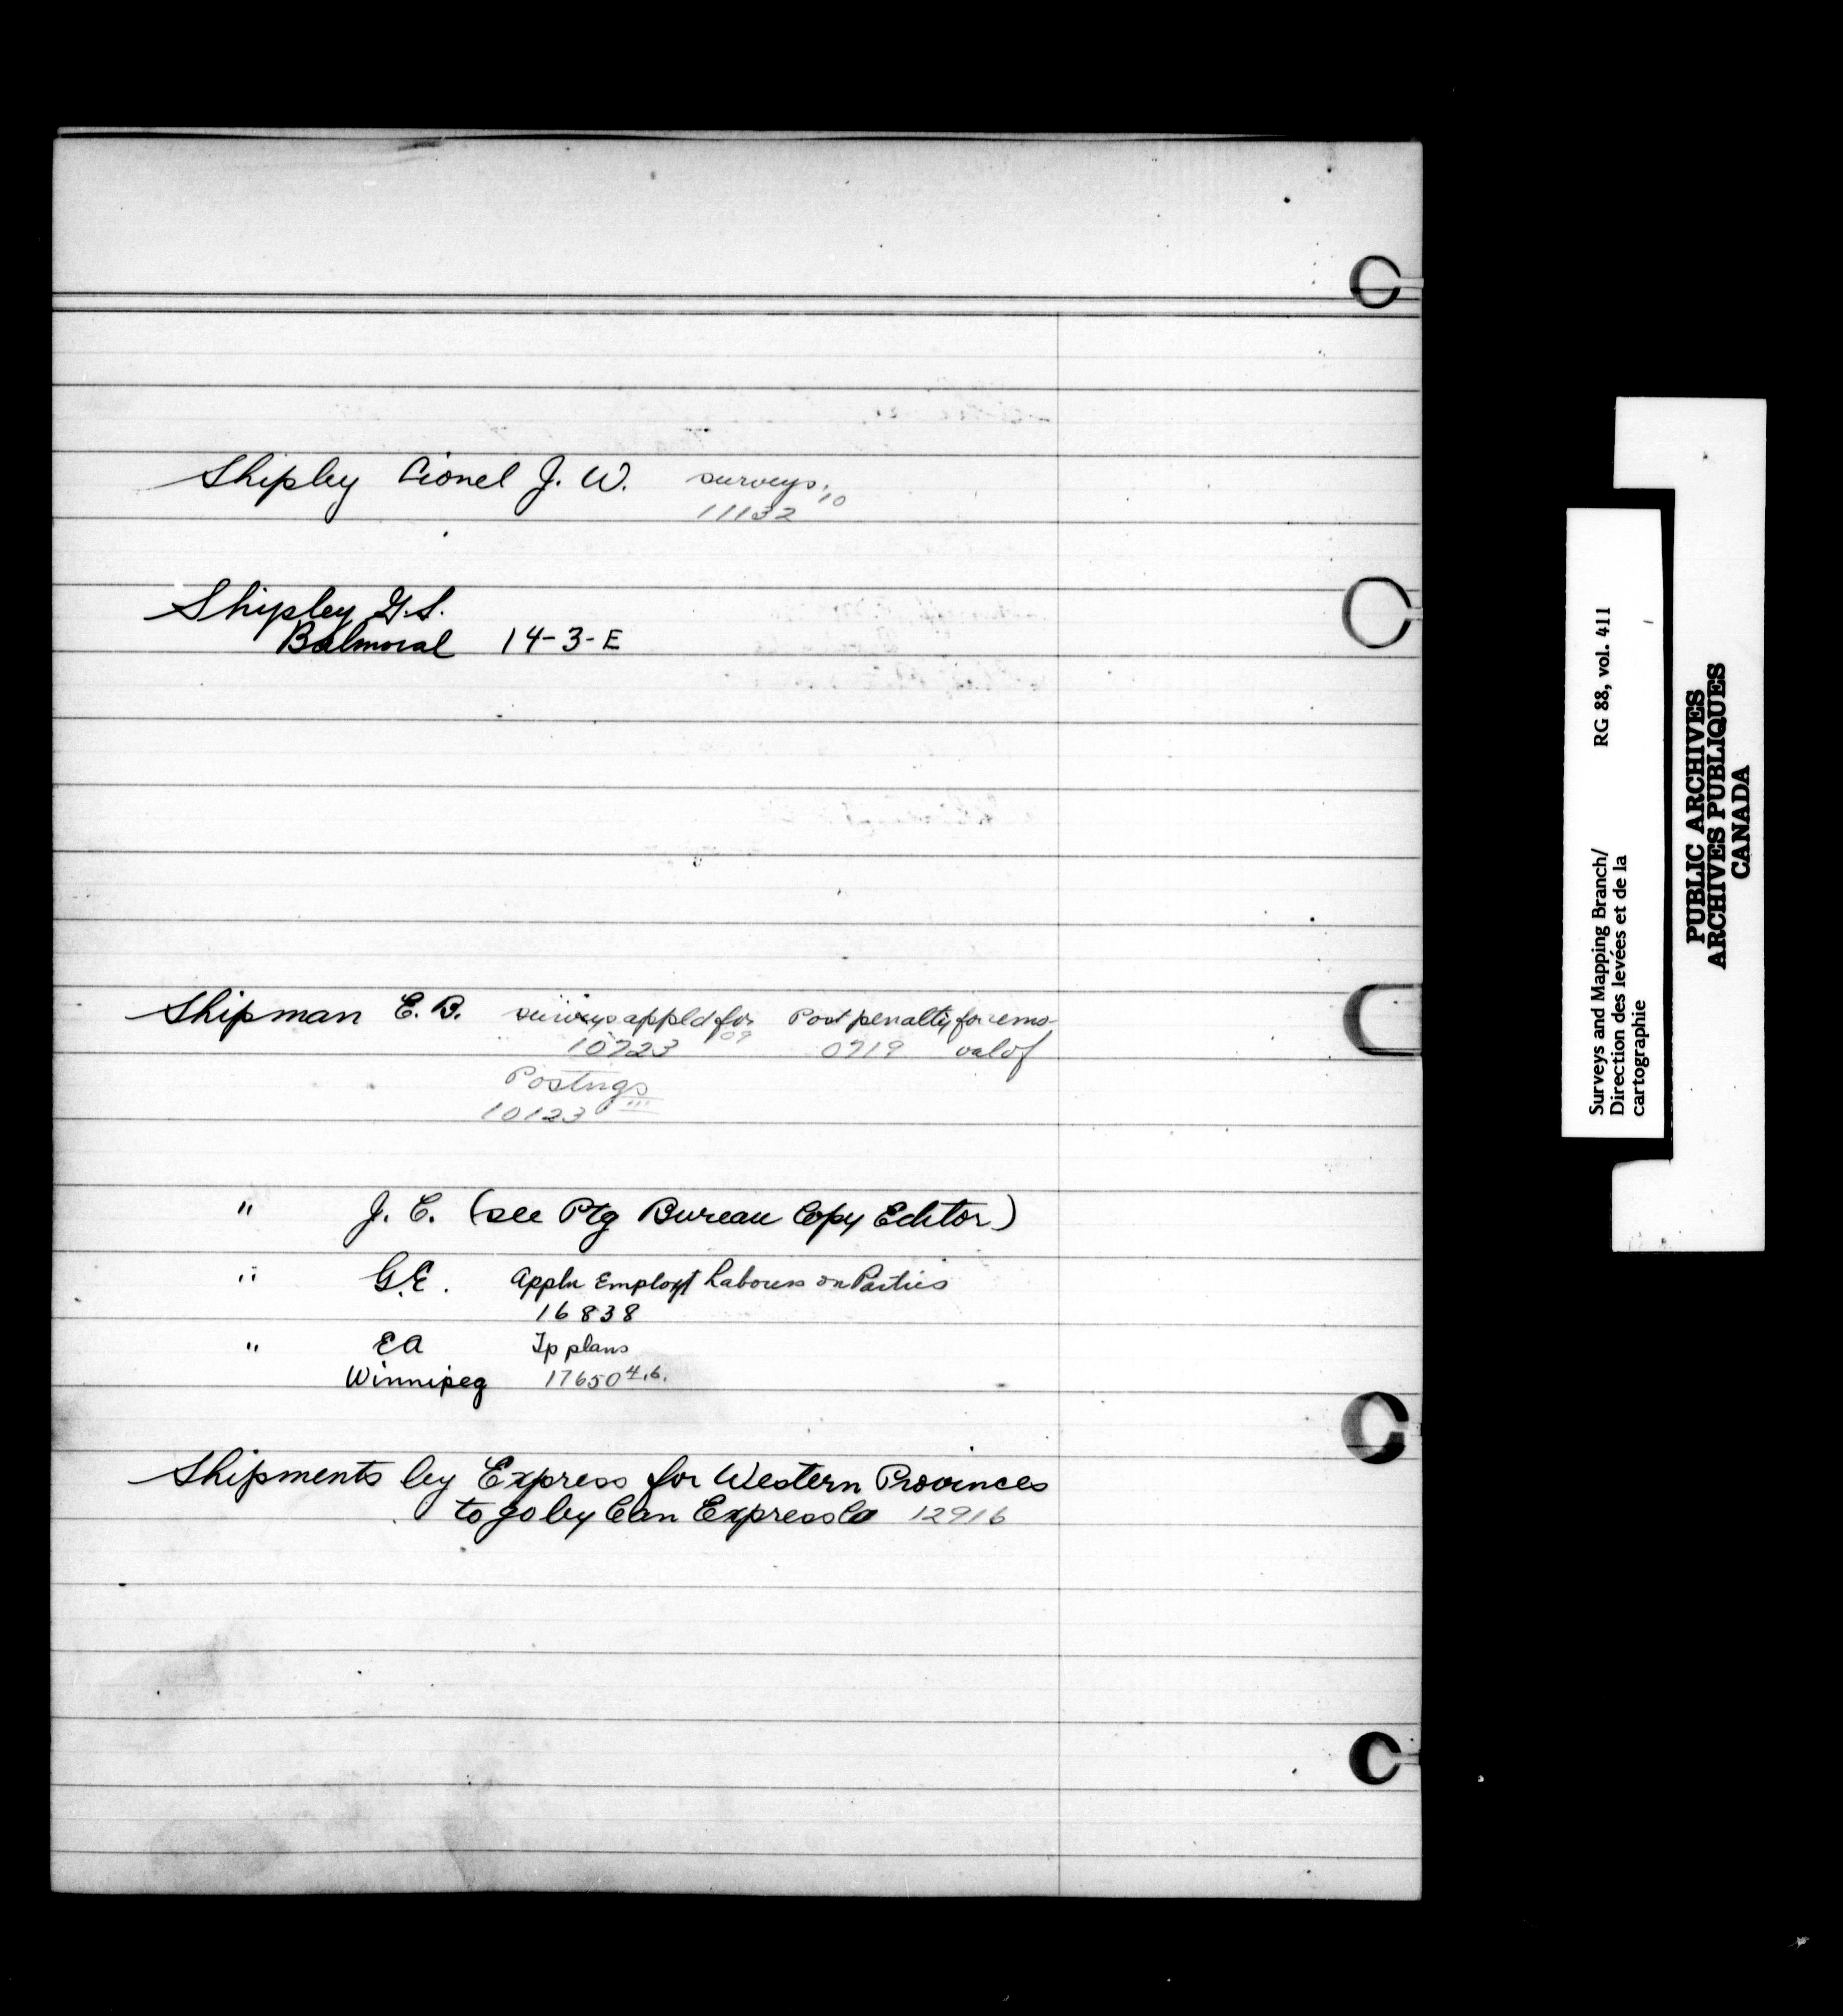 Shipley Lionel J. W. surveys.
11132 10
Shipley G. S.
Balmoral 14-3-E
Shipman E. B. surveys appld for Post penalty for remo-
10723 09 0719 val of
Postings
10123 '''
" J. C. (see Ptg Bureau Copy Editor)
" G.E. Appln Employt Labourers on Parties
16838
" EA Tp plans
Winnipeg 17650 4.6.
Shipments by Express for Western Provinces
to go by Can Express Co 12916
Surveys and Mapping Branch/ RG 88, vol. 411
Direction des levées et de la
cartographie
PUBLIC ARCHIVES
ARCHIVES PUBLIQUES
CANADA